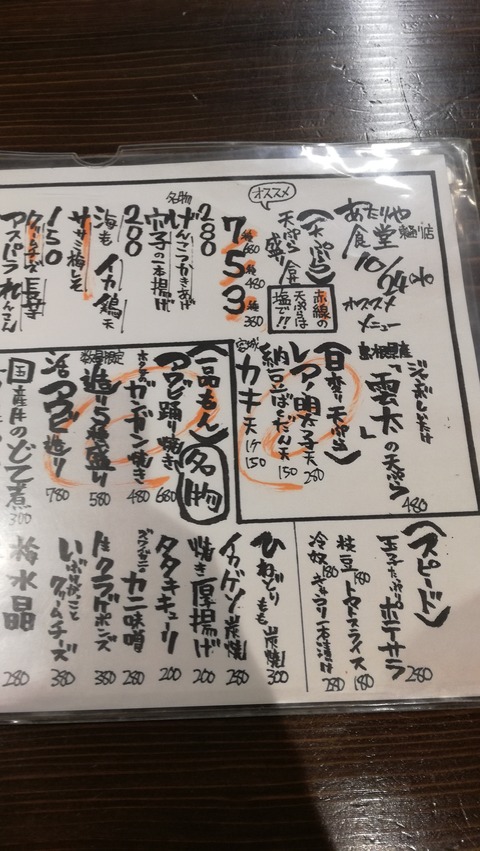 あたりや
食堂
10/
オススメ
メニュー
オススメ
(天ぷら)
天ぷら
盛り合せ
赤線の
天ぷらは
塩で!!
7種 680
5種 480
3種 380
280
げんこつかきあげ
名物
穴子の一本揚げ
200
海老 イカ 鶏天
ササミ梅しそ
150
クリームチーズ
アスパラ れんこん
島根県産
「雲太」の天ぷら
480
(日替り天ぷら)
レア明太子天 280
納豆ばくだん天 150
宮城
カキ天 1ケ 150
(一品もん)
名物
アワビ踊り焼き 680
ガンガン焼き 480
数量限定
造り5種盛り 580
活アワビ造り 780
国産牛のどて煮 300
(スピード)
玉子たっぷりポテサラ 280
枝豆 180 トマトスライス 180
冷奴 180 キュウリ一本漬け 280
ひねどりもも炭焼 300
イカゲソ炭焼 280
焼き厚揚げ 200
タタキキューリ 200
ズワイガニ
カニ味噌 280
生クラゲポンズ 380
いぶりがっこ
クリームチーズ 380
粋水晶 280